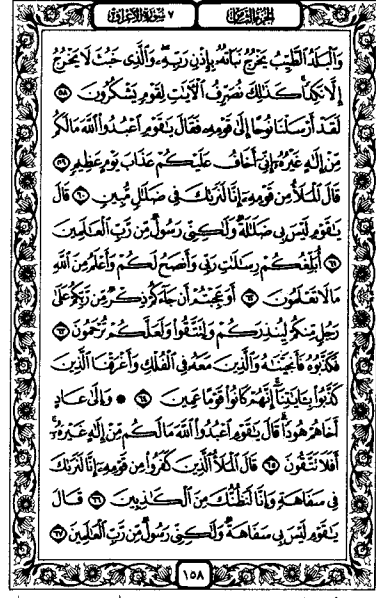 الجزء الثامن ٧ سورة الأعراف
وَٱلْبَلَدُ ٱلطَّيِّبُ يَخْرُجُ نَبَاتُهُۥ بِإِذْنِ رَبِّهِۦ وَٱلَّذِى خَبُثَ لَا يَخْرُجُ
إِلَّا نَكِدًا كَذَٰلِكَ نُصَرِّفُ ٱلْءَايَٰتِ لِقَوْمٍ يَشْكُرُونَ ٥٨
لَقَدْ أَرْسَلْنَا نُوحًا إِلَىٰ قَوْمِهِۦ فَقَالَ يَٰقَوْمِ ٱعْبُدُوا۟ ٱللَّهَ مَا لَكُم
مِّنْ إِلَٰهٍ غَيْرُهُۥٓ إِنِّىٓ أَخَافُ عَلَيْكُمْ عَذَابَ يَوْمٍ عَظِيمٍ ٥٩
قَالَ ٱلْمَلَأُ مِن قَوْمِهِۦٓ إِنَّا لَنَرَىٰكَ فِى ضَلَٰلٍ مُّبِينٍ ٦٠ قَالَ
يَٰقَوْمِ لَيْسَ بِى ضَلَٰلَةٌ وَلَٰكِنِّى رَسُولٌ مِّن رَّبِّ ٱلْعَٰلَمِينَ
٦١ أُبَلِّغُكُمْ رِسَٰلَٰتِ رَبِّى وَأَنصَحُ لَكُمْ وَأَعْلَمُ مِنَ ٱللَّهِ
مَا لَا تَعْلَمُونَ ٦٢ أَوَعَجِبْتُمْ أَن جَآءَكُمْ ذِكْرٌ مِّن رَّبِّكُمْ عَلَىٰ
رَجُلٍ مِّنكُمْ لِيُنذِرَكُمْ وَلِتَتَّقُوا۟ وَلَعَلَّكُمْ تُرْحَمُونَ ٦٣
فَكَذَّبُوهُ فَأَنجَيْنَٰهُ وَٱلَّذِينَ مَعَهُۥ فِى ٱلْفُلْكِ وَأَغْرَقْنَا ٱلَّذِينَ
كَذَّبُوا۟ بِـَٔايَٰتِنَآ إِنَّهُمْ كَانُوا۟ قَوْمًا عَمِينَ ٦٤ ۞ وَإِلَىٰ عَادٍ
أَخَاهُمْ هُودًا قَالَ يَٰقَوْمِ ٱعْبُدُوا۟ ٱللَّهَ مَا لَكُم مِّنْ إِلَٰهٍ غَيْرُهُۥٓ
أَفَلَا تَتَّقُونَ ٦٥ قَالَ ٱلْمَلَأُ ٱلَّذِينَ كَفَرُوا۟ مِن قَوْمِهِۦٓ إِنَّا لَنَرَىٰكَ
فِى سَفَاهَةٍ وَإِنَّا لَنَظُنُّكَ مِنَ ٱلْكَٰذِبِينَ ٦٦ قَالَ
يَٰقَوْمِ لَيْسَ بِى سَفَاهَةٌ وَلَٰكِنِّى رَسُولٌ مِّن رَّبِّ ٱلْعَٰلَمِينَ ٦٧
١٥٨